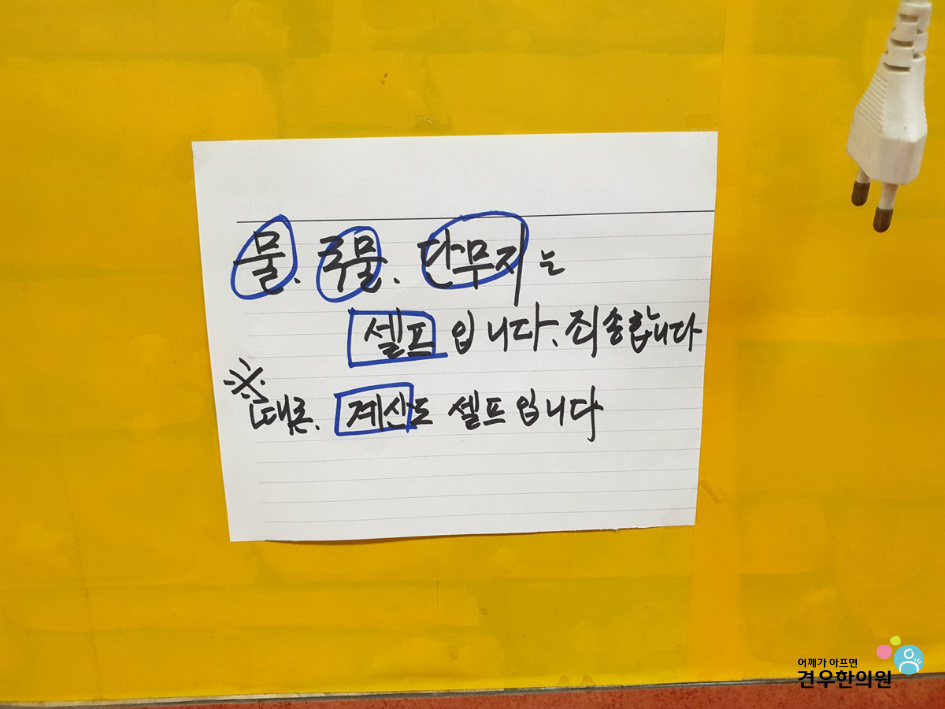 물. 국물. 단무지는
셀프 입니다. 죄송합니다
※
때론. 계산도 셀프 입니다
어깨가 아프면
견우한의원